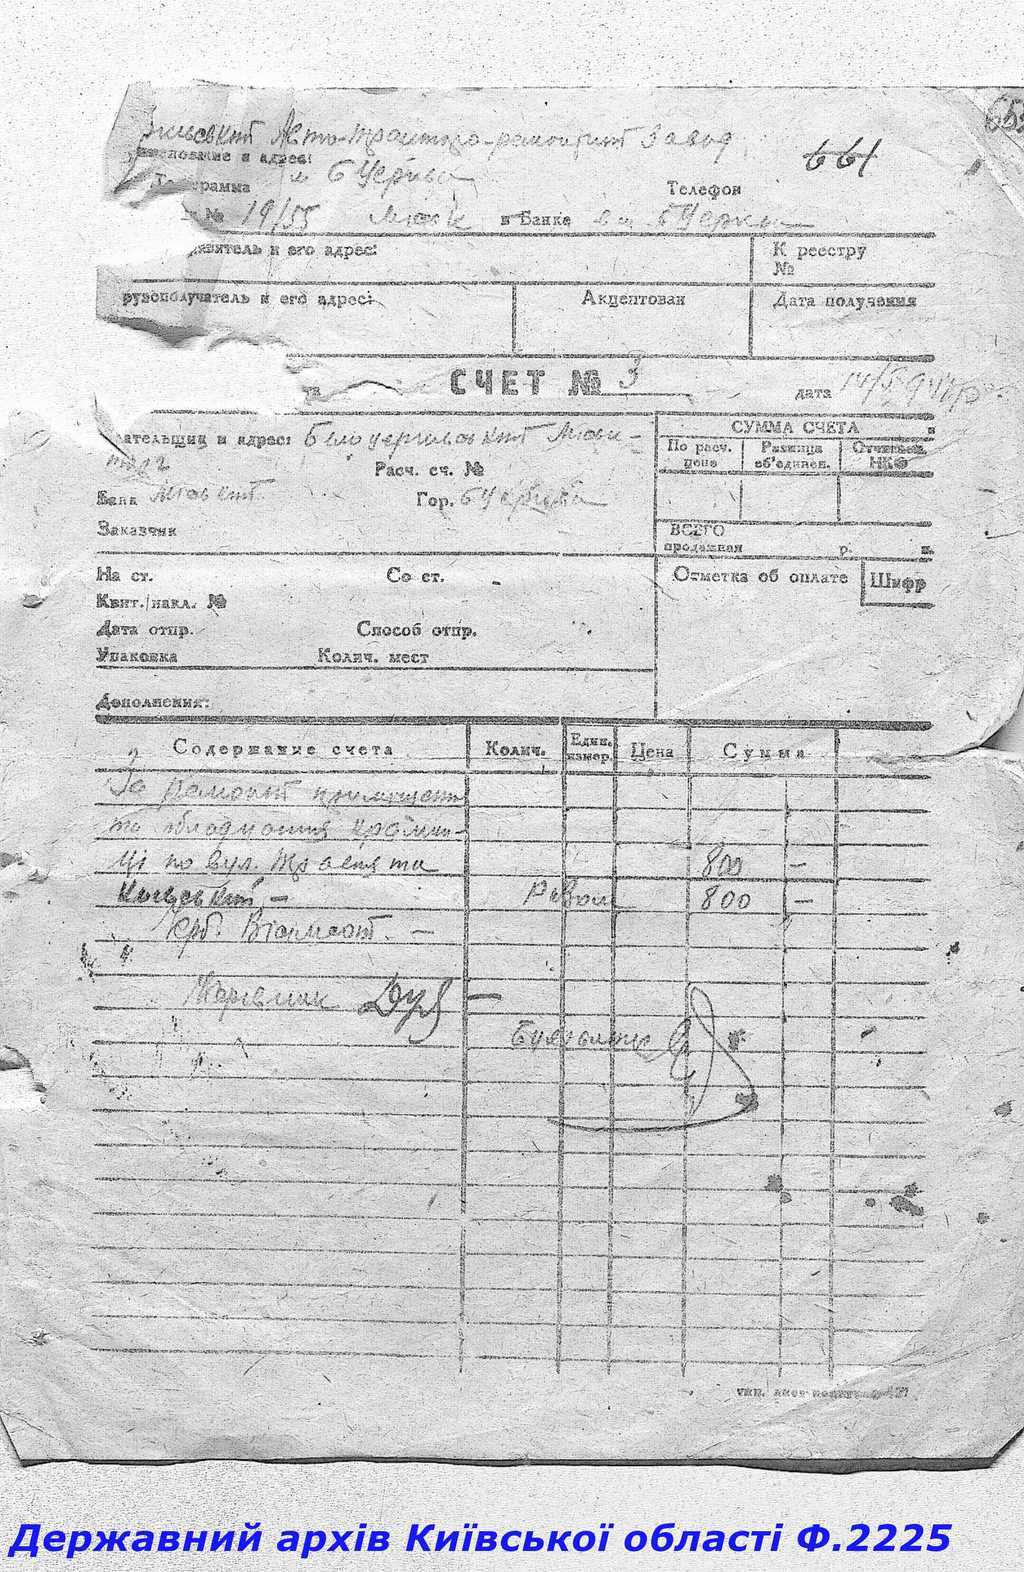 Авто-тракторо-ремонтний Завод
65
661
и адрес:
м. БЦерква
Телефон
№ 19/55 в Банке БЦерква
и его адрес:
К реестру
№
рузополучатель и его адрес:
Акцептован
Дата получения
СЧЕТ № 3
дата 14/
ательщик и адрес: Белоцерківський Місь-
торг
Расч. сч. №
Банк Міський
Гор. БЦерква
Заказчик
СУММА СЧЕТА
По расч. цене
Разница об'единен.
Отчислен. НКФ
ВСЕГО
продажная р. к.
На ст. Со ст.
Квит./накл. №
Дата отпр. Способ отпр.
Упаковка Колич. мест
Отметка об оплате
Шифр
Дополнения:
Содержание счета Колич. Един. измер. Цена Сумма
За ремонт приміщень
та обладнання крамни-
ці по вул. та 800 —
— Разом 800 —
Крб. Вісімсот. —
Бухгалтер
Державний архів Київської області Ф.2225